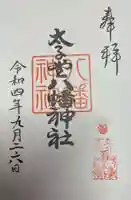 奉拝
八幡神社
太子堂八幡神社
令和四年九月二六日